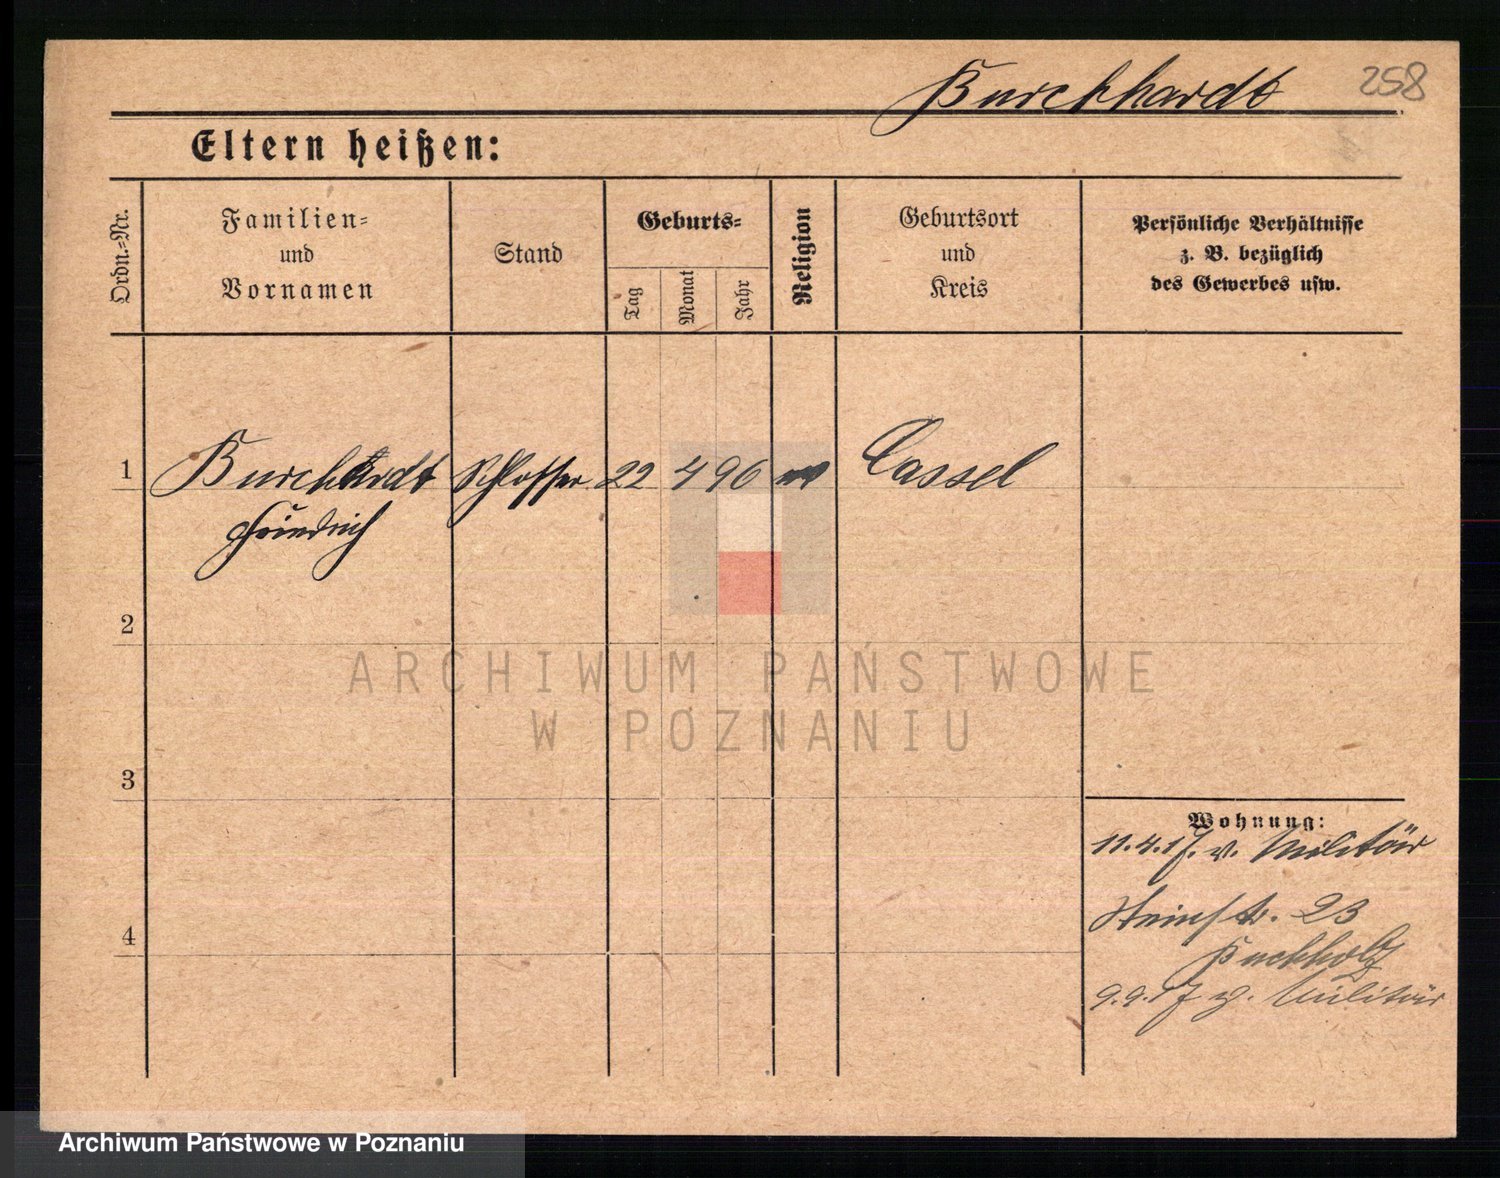 Burchhardt 258
Eltern heißen:
Ordn.=Nr.
Familien=
und
Vornamen
Stand
Geburts=
Tag
Monat
Jahr
Religion
Geburtsort
und
Kreis
Persönliche Verhältnisse
z. B. bezüglich
des Gewerbes usw.
1 Burchhardt Schlosser 22 4 96 Cassel
Friedrich
2
3
4
Wohnung:
11.4.17. v. Militär
Steinstr. 23
Buchholz
9.9.17 z. Militär
ARCHIWUM PAŃSTWOWE
W POZNANIU
Archiwum Państwowe w Poznaniu